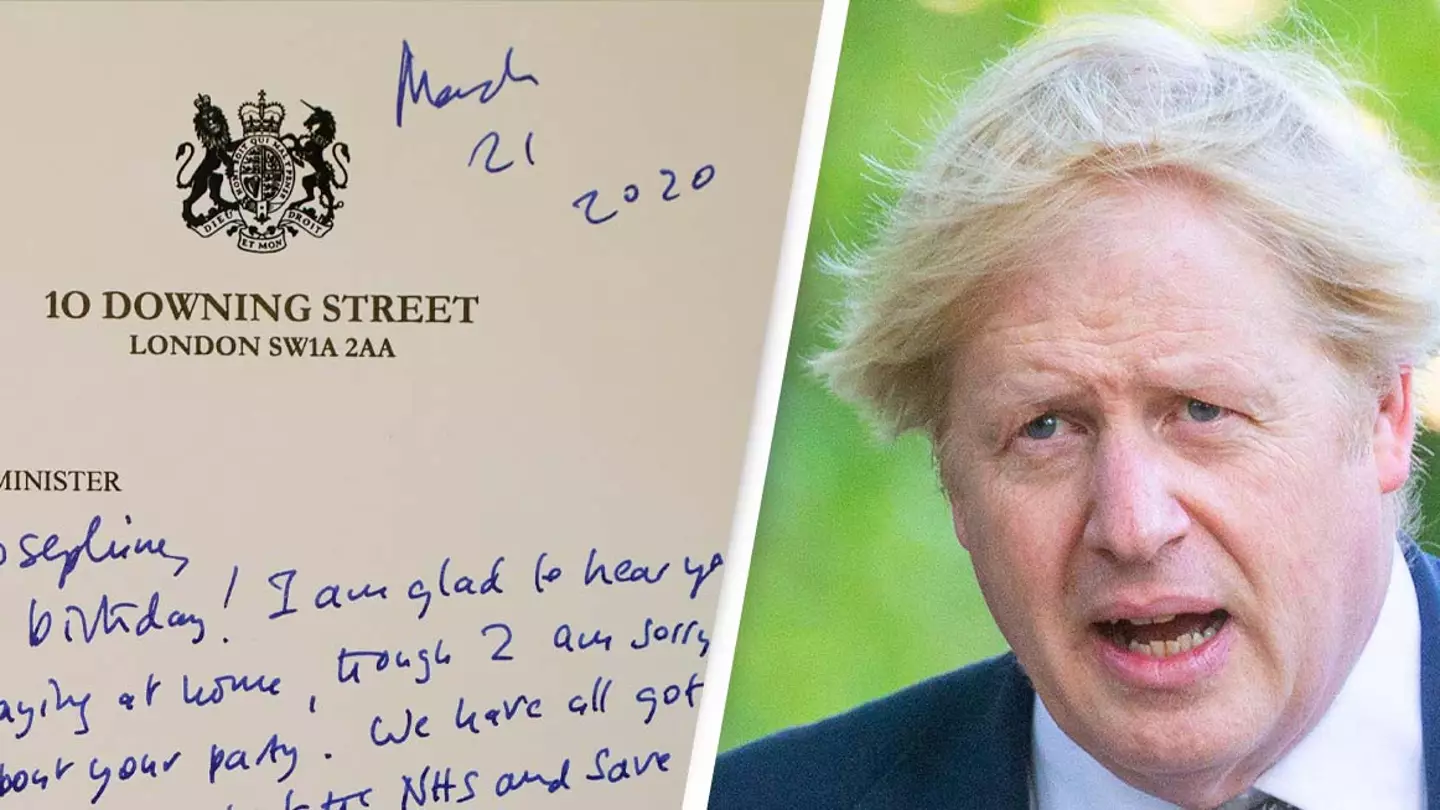 March
21
2020
DIEU ET MON DROIT
10 DOWNING STREET
LONDON SW1A 2AA
MINISTER
osephine,
birthday! I am glad to hear yo
aying at home, though I am sorry
bout your party. We have all got
NHS and save